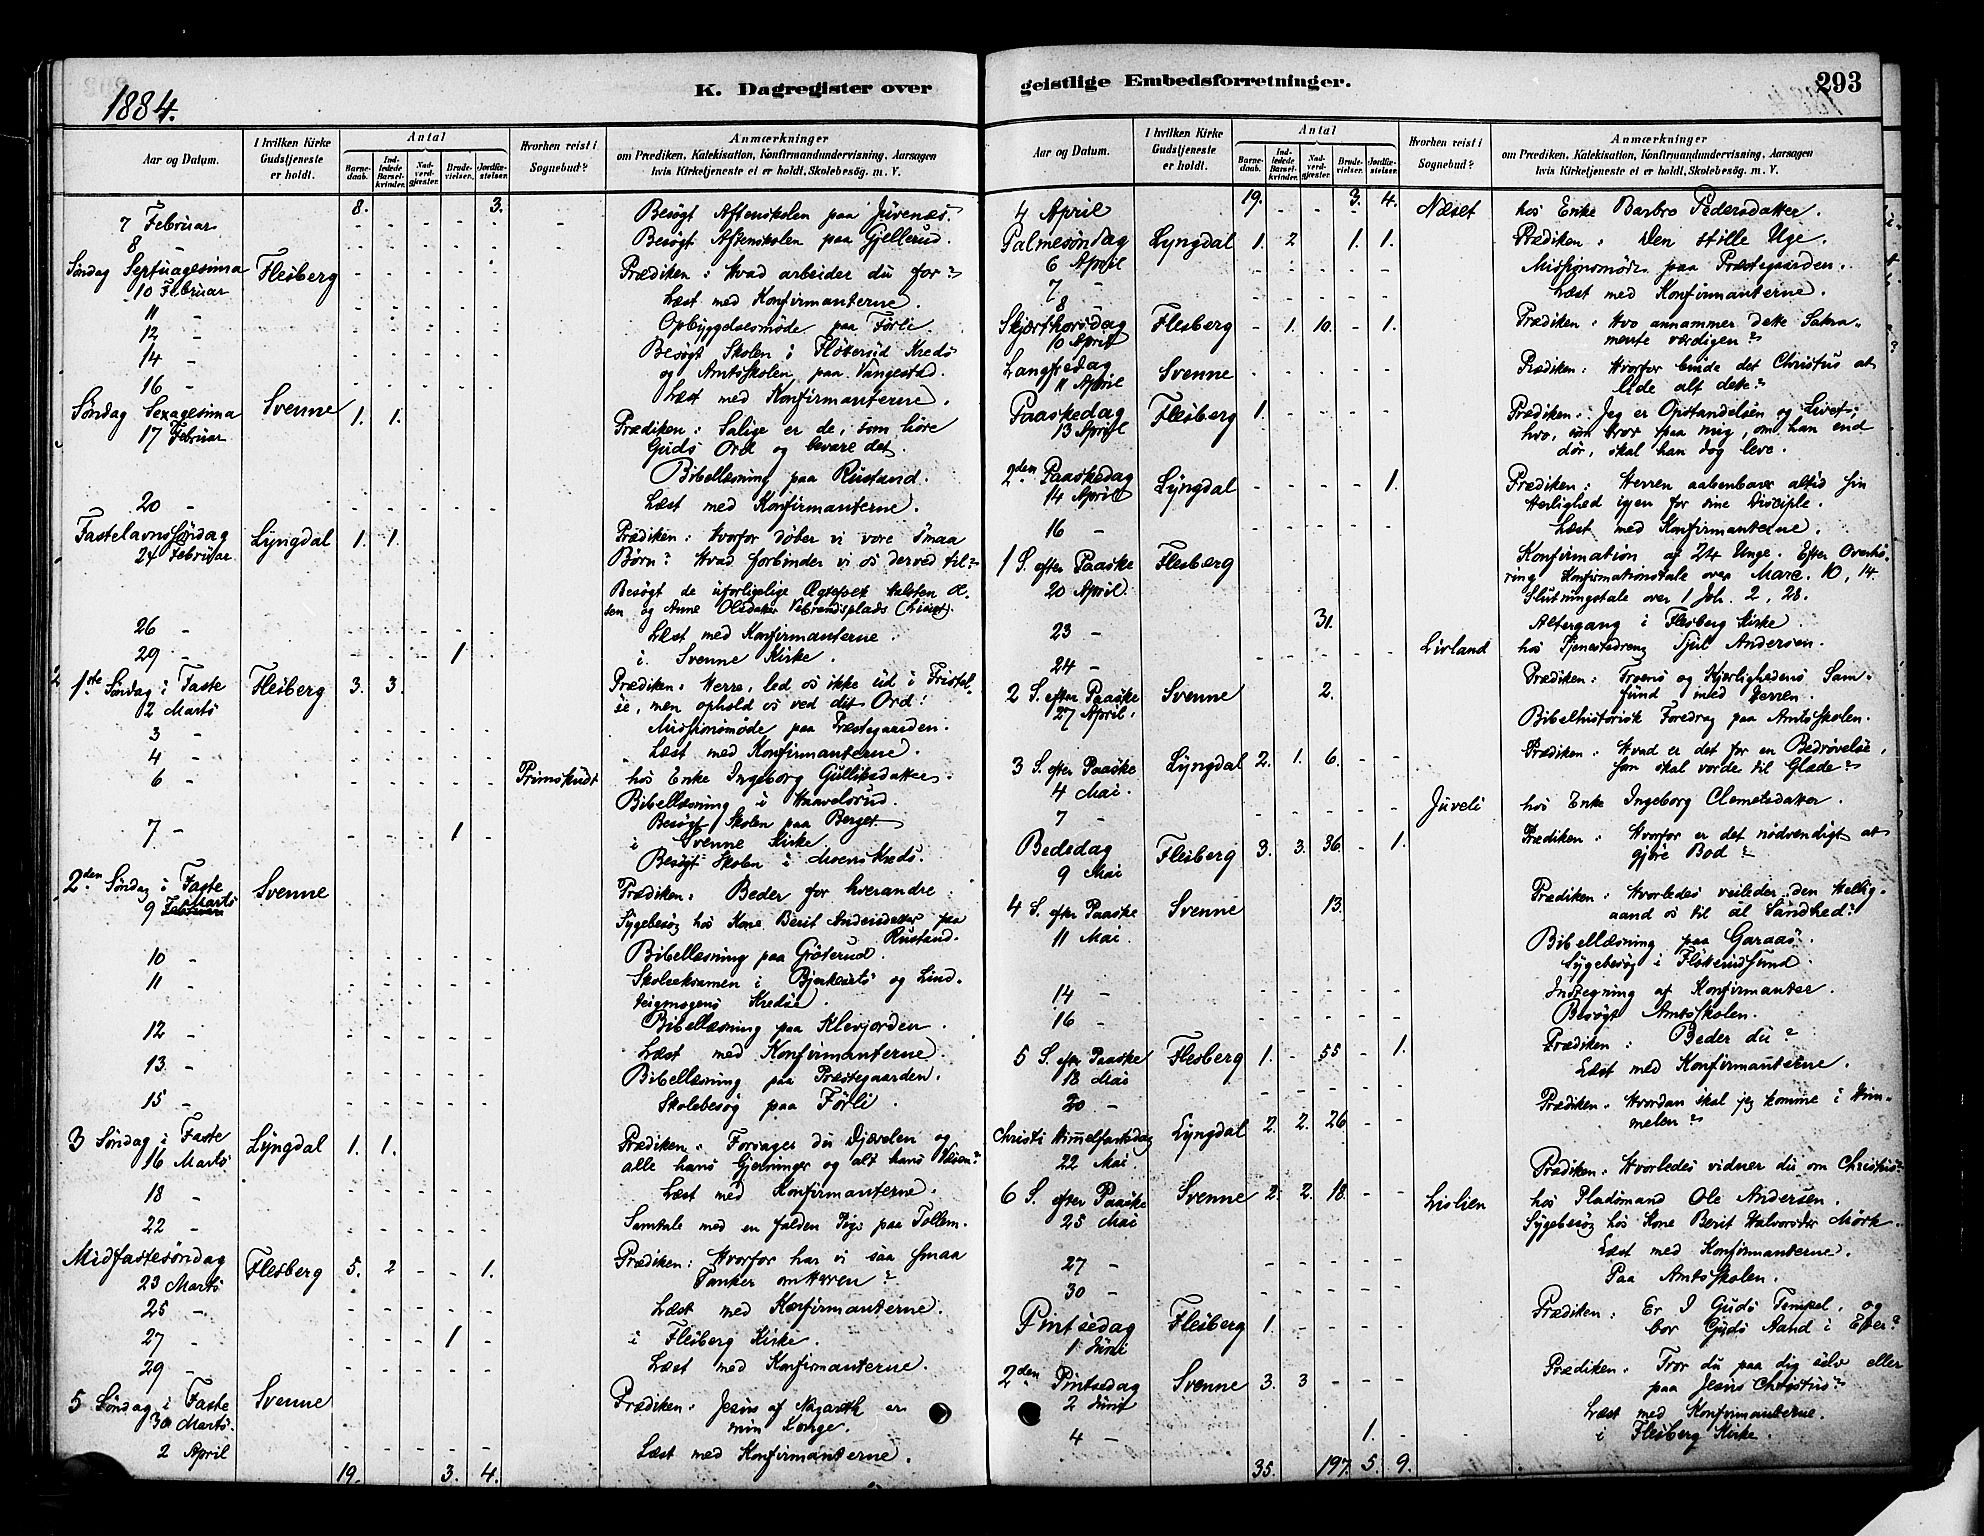 1884.
K. Dagregister over
Aar og Datum.
I hvilken Kirke Gudstjeneste er holdt.
Antal
Barnedaab.
Indledede Barselkvinder.
Nadverdgjæster.
Brudevielser.
Jordfæstelser.
Hvorhen reist i Sognebud?
Anmærkninger
om Prædiken, Katekisation, Konfirmandundervisning, Aarsagen
hvis Kirketjeneste ei er holdt, Skolebesøg. m. V.
8. - - - 3.
7 Februar - Besøgt Aftenskolen paa Juvenæs.
8 - Besøgt Aftenskolen paa Gjellerud.
Søndag Septuagesima Flesberg Prædiken: Hvad arbeider du for?
10 Februar Læst med Konfirmanterne.
11 - Opbyggelsesmøde paa Førli.
12 - Besøgt Skolen i Kreds
14 - og Amtsskolen paa Vangestad.
16 - Læst med Konfirmanterne.
Søndag Sexagesima Svenne 1. 1.
17 Februar Prædiken: Salige er de, som høre
Guds Ord og bevare det.
Bibellæsning paa Rustand.
20 - Læst med Konfirmanterne.
Fastelavnssøndag Lyngdal 1. 1. Prædiken: Hvorfor døber vi vore smaa
24 Februar Børn? Hvad forbinder vi os derved til?
Besøgt de uforligelige Ægtefolk Halsten Ol-
sen og Anne Olsdatter
26 - Læst med Konfirmanterne.
29 - 1 i Svenne Kirke.
1ste Søndag i Faste Flesberg 3. 3. Prædiken: Herre, led os ikke ud i Fristel-
2 Marts se, men ophold os ved dit Ord!
3 - Missionsmøde paa Præstegaarden.
4 - Læst med Konfirmanterne.
6 - Primskudt hos Enke Ingeborg Gulliksdatter.
Bibellæsning i Haavelsrud.
Besøgt Skolen paa Berget
7 - 1 i Svenne Kirke
Besøgt Skolen i Moens Kreds.
2den Søndag i Faste Svenne Prædiken: Beder for hverandre
9 Februar Marts Sygebesøg hos Kone Berit Andersdatter paa
Rustand.
10 - Bibellæsning paa Grøterud.
11 - Skoleeksamen i og Lind-
Kredse.
12 - Bibellæsning paa Klevjorden.
Læst med Konfirmanterne.
13 - Bibellæsning paa Præstegaarden.
15 - Skolebesøg paa Førli.
3 Søndag i Faste Lyngdal 1. 1. Prædiken: Forsager du Djævelen og
16 Marts alle hans Gjerninger og alt hans Væsen?
18 - Læst med Konfirmanterne.
22 - Samtale med en falden Pige paa Tollem.
Midfastesøndag Flesberg 5. 2 - - 1. Prædiken: Hvorfor har vi saa smaa
23 Marts Tanker om Herren?
25 - Læst med Konfirmanterne.
27 - 1 i Flesberg Kirke.
29 - Læst med Konfirmanterne.
5 Søndag i Faste Svenne Prædiken: Jesus af Nazareth er
30 Marts. min Konge.
2 April Læst med Konfirmanterne.
19. 3. 4.
geistlige Embedsforretninger.
293
Aar og Datum.
I hvilken Kirke Gudstjeneste er holdt.
Antal
Barnedaab.
Indledede Barselkvinder.
Nadverdgjæster.
Brudevielser.
Jordfæstelser.
Hvorhen reist i Sognebud?
Anmærkninger
om Prædiken, Katekisation, Konfirmandundervisning, Aarsagen
hvis Kirketjeneste ei er holdt, Skolebesøg. m. V.
19. - - 3. 4.
4 April Næset hos Enke Barbro Pedersdatter.
Palmesøndag Lyngdal 1. 2 1. 1. Prædiken: Den stille Uge.
6 April Missionsmøde paa Præstegaarden.
7 -
8 - Læst med Konfirmanterne.
Skjærthorsdag Flesberg - 1. 10. - 1. Prædiken: Hvo annammer dette Sakra-
10 April mente værdigen?
Langfredag Svenne Prædiken: Hvorfor burde det Christus at
11 April lide alt dette?
Paaskedag Flesberg 1. Prædiken: Jeg er Opstandelsen og Livet;
13 April hvo, som tror paa mig, om han end
dør, skal han dog leve.
2den Paaskedag Lyngdal 1. Prædiken: Herren aabenbarer altid sin
14 April Herlighed igjen for sine Disciple.
16 - Læst med Konfirmanterne.
1 S. efter Paaske Flesberg Konfirmation af 24 Unge. Efter Overhø-
20 April ring Konfirmationstale over Marc. 10, 14.
Slutningstale over 1 Joh. 2, 28.
23 - 31. Altergang i Flesberg Kirke.
24 - Livland hos Tjenestedreng Kjul Andersen.
2 S. efter Paaske Svenne 2. Prædiken: Troens og Kjærlighedens Sam-
27 April. fund med Herren.
Bibelhistorisk Foredrag paa Amtsskolen.
3 S. efter Paaske Lyngdal 2. 1. 6. Prædiken: Hvad er det for en Bedrøvelse,
4 Mai. som skal vorde til Glæde?
7 - Juveli hos Enke Ingeborg Clemetsdatter.
Bededag Flesberg 3. 3. 36. - 1. Prædiken: Hvorfor er det nødvendigt at
9 Mai gjøre Bod?
4 S. efter Paaske Svenne 13. Prædiken: Hvorledes veileder den Hellig-
11 Mai. aand os til al Sandhed?
Bibellæsning paa Garaas.
Sygebesøg i
14 - Indtegning af Konfirmanter.
16 - Besøgt Amtsskolen.
5 S. efter Paaske Flesberg 1. - 55 - 1. Prædiken: Beder du?
18 Mai
20 - Læst med Konfirmanterne.
Christi Himmelfartsdag Lyngdal 2. 2. 26 Prædiken: Hvordan skal jeg komme i Him-
22 Mai. melen?
6 S. efter Paaske Svenne 2. 2. 18 Prædiken: Hvorledes vidner du om Christus?
25 Mai Lislien hos Pladsmand Ole Andersen.
Sygebesøg hos Kone Berit Halvorsdtr Mørk.
27 - Læst med Konfirmanterne.
30 - Paa Amtsskolen.
Pintsedag Flesberg 1. Prædiken: Er I Guds Tempel, og
1 Juni bor Guds Aand i Eder?
2den Pintsedag Svenne 3. 3 Prædiken: Tror du paa dig selv eller
2 Juni paa Jesus Christus?
Læst med Konfirmanterne.
4 - 1. i Flesberg Kirke.
35. 197. 5. 9.